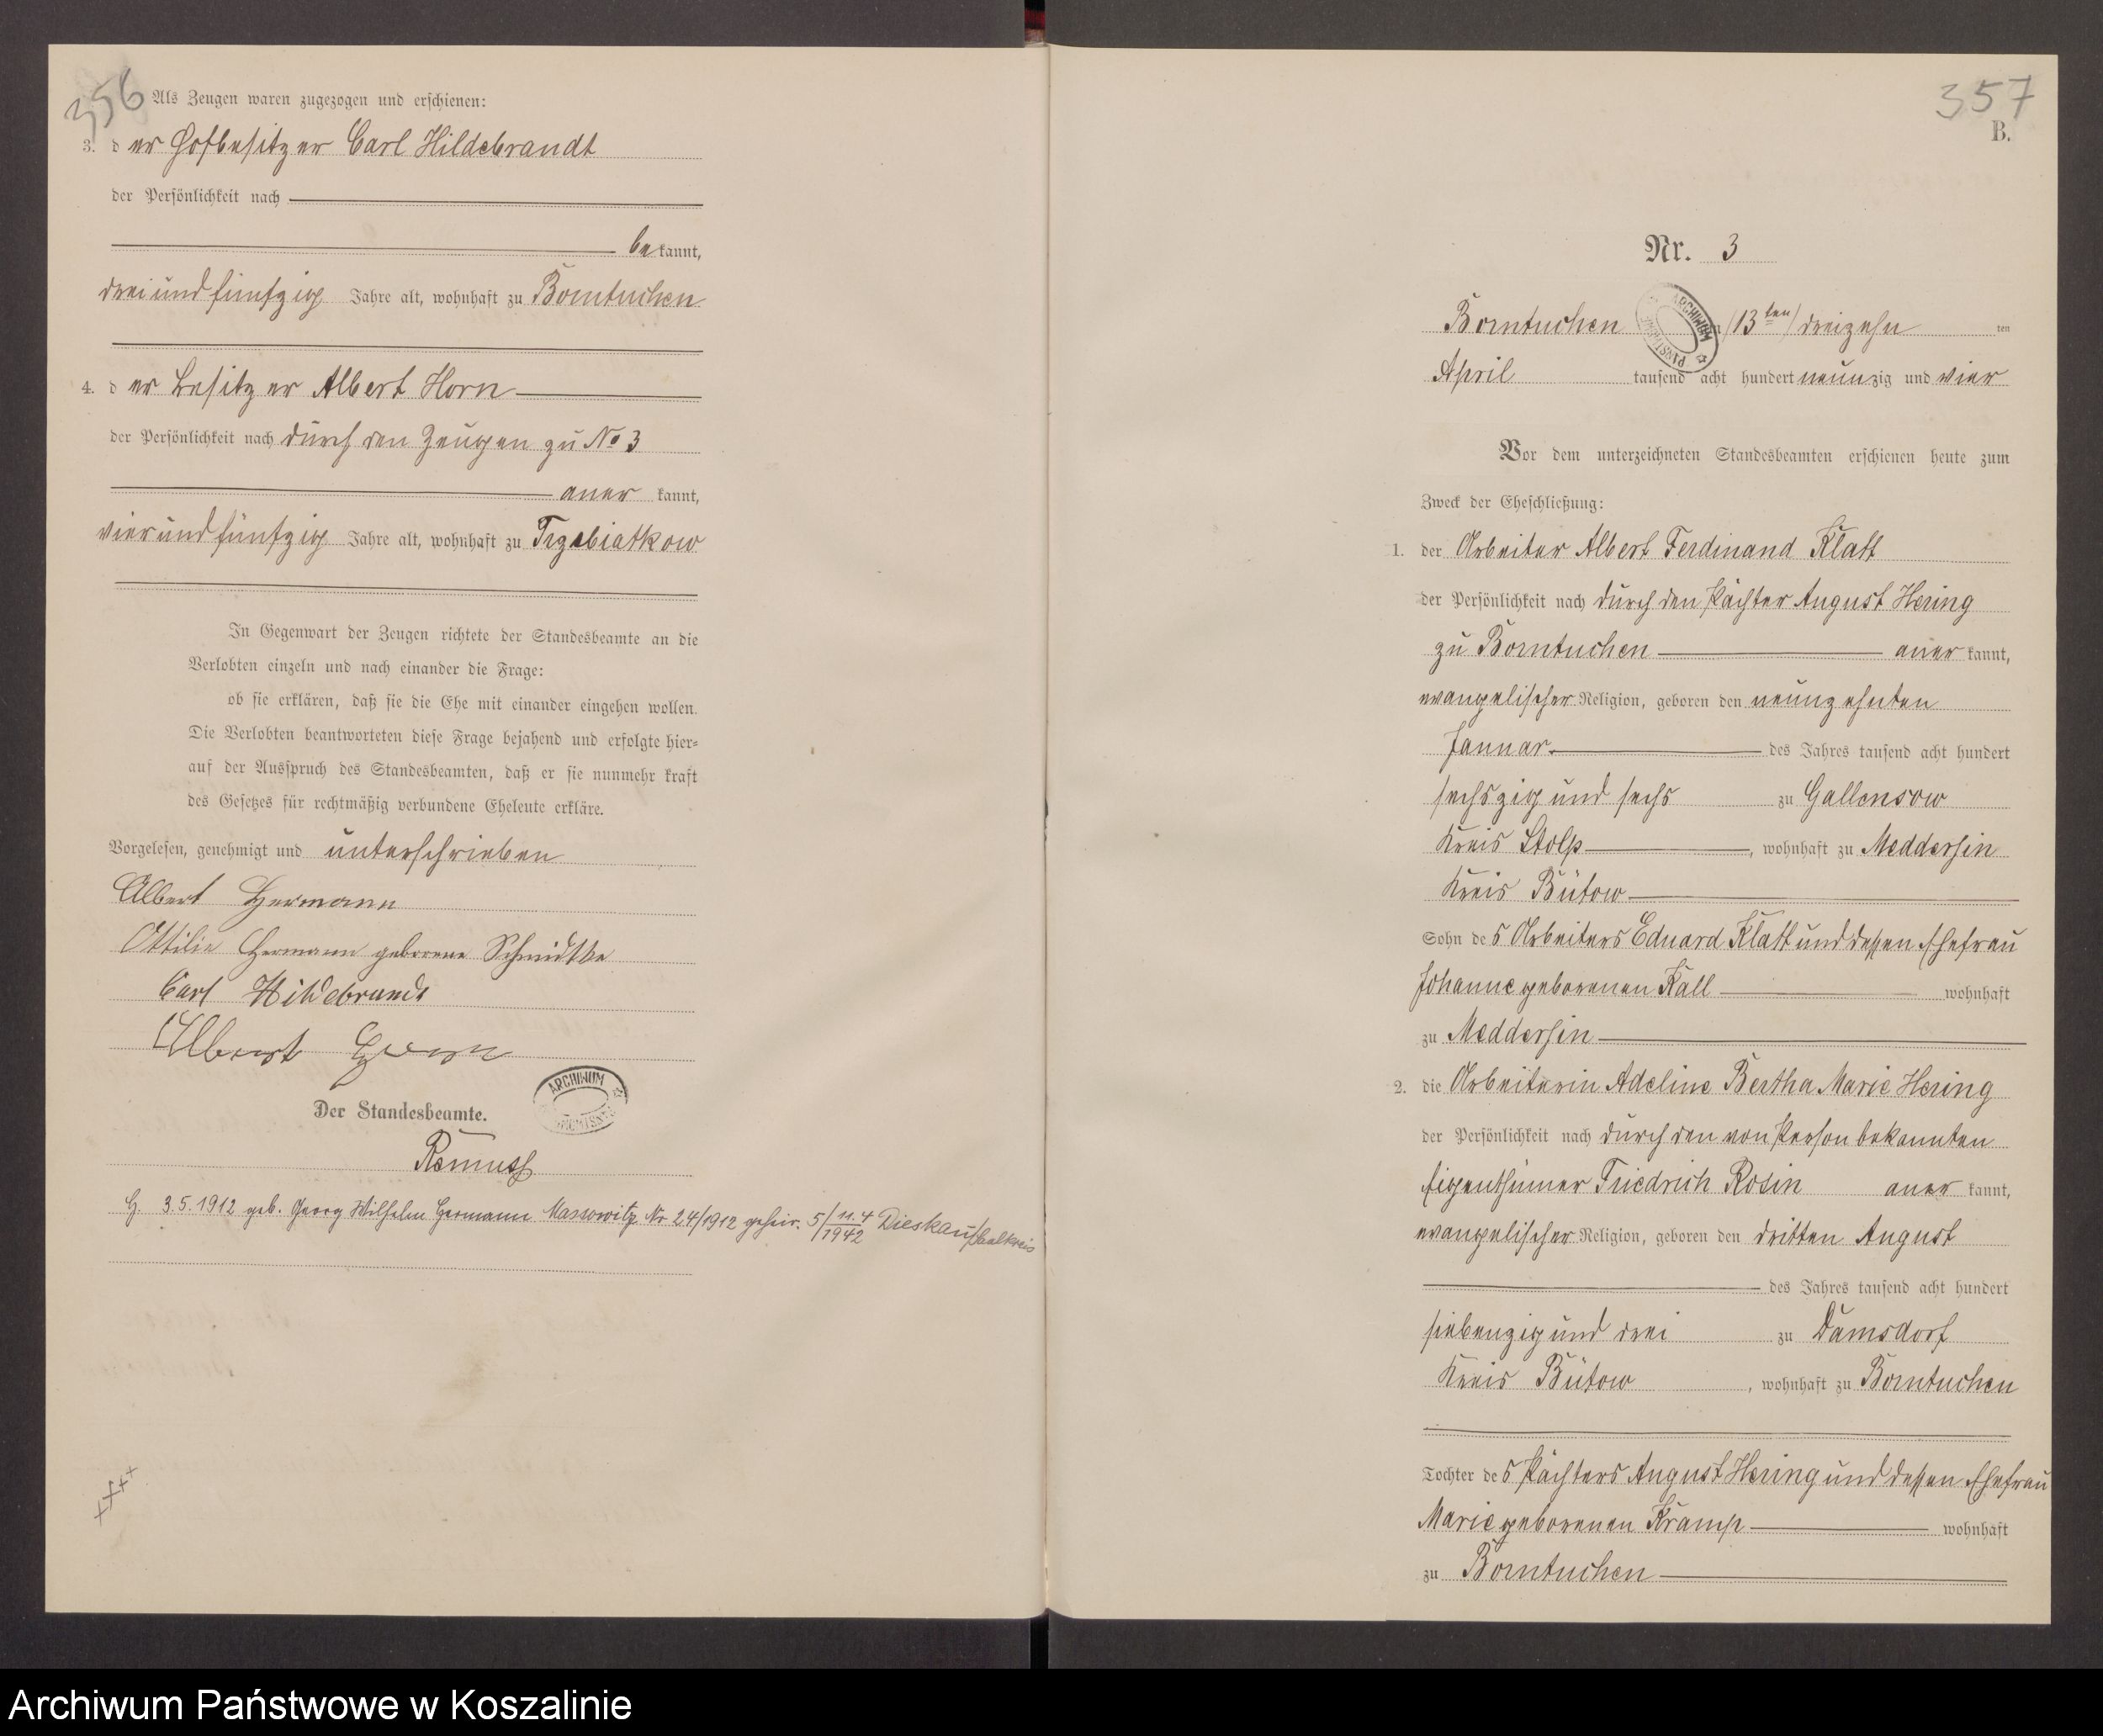 356
Als Zeugen waren zugezogen und erschienen:
3. der Hofbesitzer Carl Hildebrandt
der Persönlichkeit nach
bekannt,
dreiundfünfzig Jahre alt, wohnhaft zu Borntuchen
4. der Besitzer Albert Horn
der Persönlichkeit nach durch den Zeugen zu No 3
anerkannt,
vierundfünfzig Jahre alt, wohnhaft zu Trzebiatkow
In Gegenwart der Zeugen richtete der Standesbeamte an die
Verlobten einzeln und nach einander die Frage:
ob sie erklären, daß sie die Ehe mit einander eingehen wollen.
Die Verlobten beantworteten diese Frage bejahend und erfolgte hier=
auf der Ausspruch des Standesbeamten, daß er sie nunmehr kraft
des Gesetzes für rechtmäßig verbundene Eheleute erkläre.
Vorgelesen, genehmigt und unterschrieben
Albert Hermann
Ottilie Hermann geborene Schmidtke
Carl Hildebrandt
Albert Horn
ARCHIWUM
Der Standesbeamte.
Remuss
3.5.1912 geb. Georg Wilhelm Hermann Massowitz Nr 24/1912 geheir. 5/11.4 1942 Dieskau/Saalkreis
357
B.
Nr. 3
Borntuchen /13ten/ dreizehnten
ARCHIWUM PAŃSTWOWE
April tausend acht hundert neunzig und vier
Vor dem unterzeichneten Standesbeamten erschienen heute zum
Zweck der Eheschließung:
1. der Arbeiter Albert Ferdinand Klatt
der Persönlichkeit nach durch den Pächter August Hering
zu Borntuchen anerkannt,
evangelischer Religion, geboren den neunzehnten
Januar des Jahres tausend acht hundert
sechszig und sechs zu Gallensow
Kreis Stolp, wohnhaft zu Meddersin
Kreis Bütow
Sohn des Arbeiters Eduard Klatt und dessen Ehefrau
Johanne geborenen Kall wohnhaft
zu Meddersin
2. die Arbeiterin Adeline Bertha Marie Hering
der Persönlichkeit nach durch den von Person bekannten
Eigenthümer Friedrich Rosin anerkannt,
evangelischer Religion, geboren den dritten August
des Jahres tausend acht hundert
siebenzig und drei zu Damsdorf
Kreis Bütow, wohnhaft zu Borntuchen
Tochter des Pächters August Hering und dessen Ehefrau
Marie geborenen Kramp wohnhaft
zu Borntuchen
Archiwum Państwowe w Koszalinie